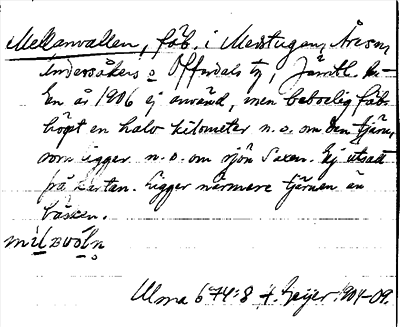 Mellanvallen, fäb. i Medstugan, Åre sn,
Undersåkers o Offerdals tg, Jämtl. län
En år 1906 ej använd, men beboelig fäb.
högst en halv kilometer n.o. om den tjärn,
som ligger n.o. om sjön Saxen. Ej utsatt
på kartan. Ligger närmare tjärnen än
bäcken.
Ulma 674:8 H. Geijer 1904-09.